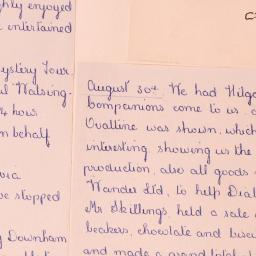 hly enjoyed
entertained
ystery Tour,
Walsing-
hour
n behalf
via
ve stopped
Downham
August 30th. We had Hilga
Companions come to us
Ovaltine was shown, which
interesting showing us the
production, also all goods
Wander Ltd, to help Diab
Mr Skillings, held a sale
beakers, chocolate and biscu
and made a grand total